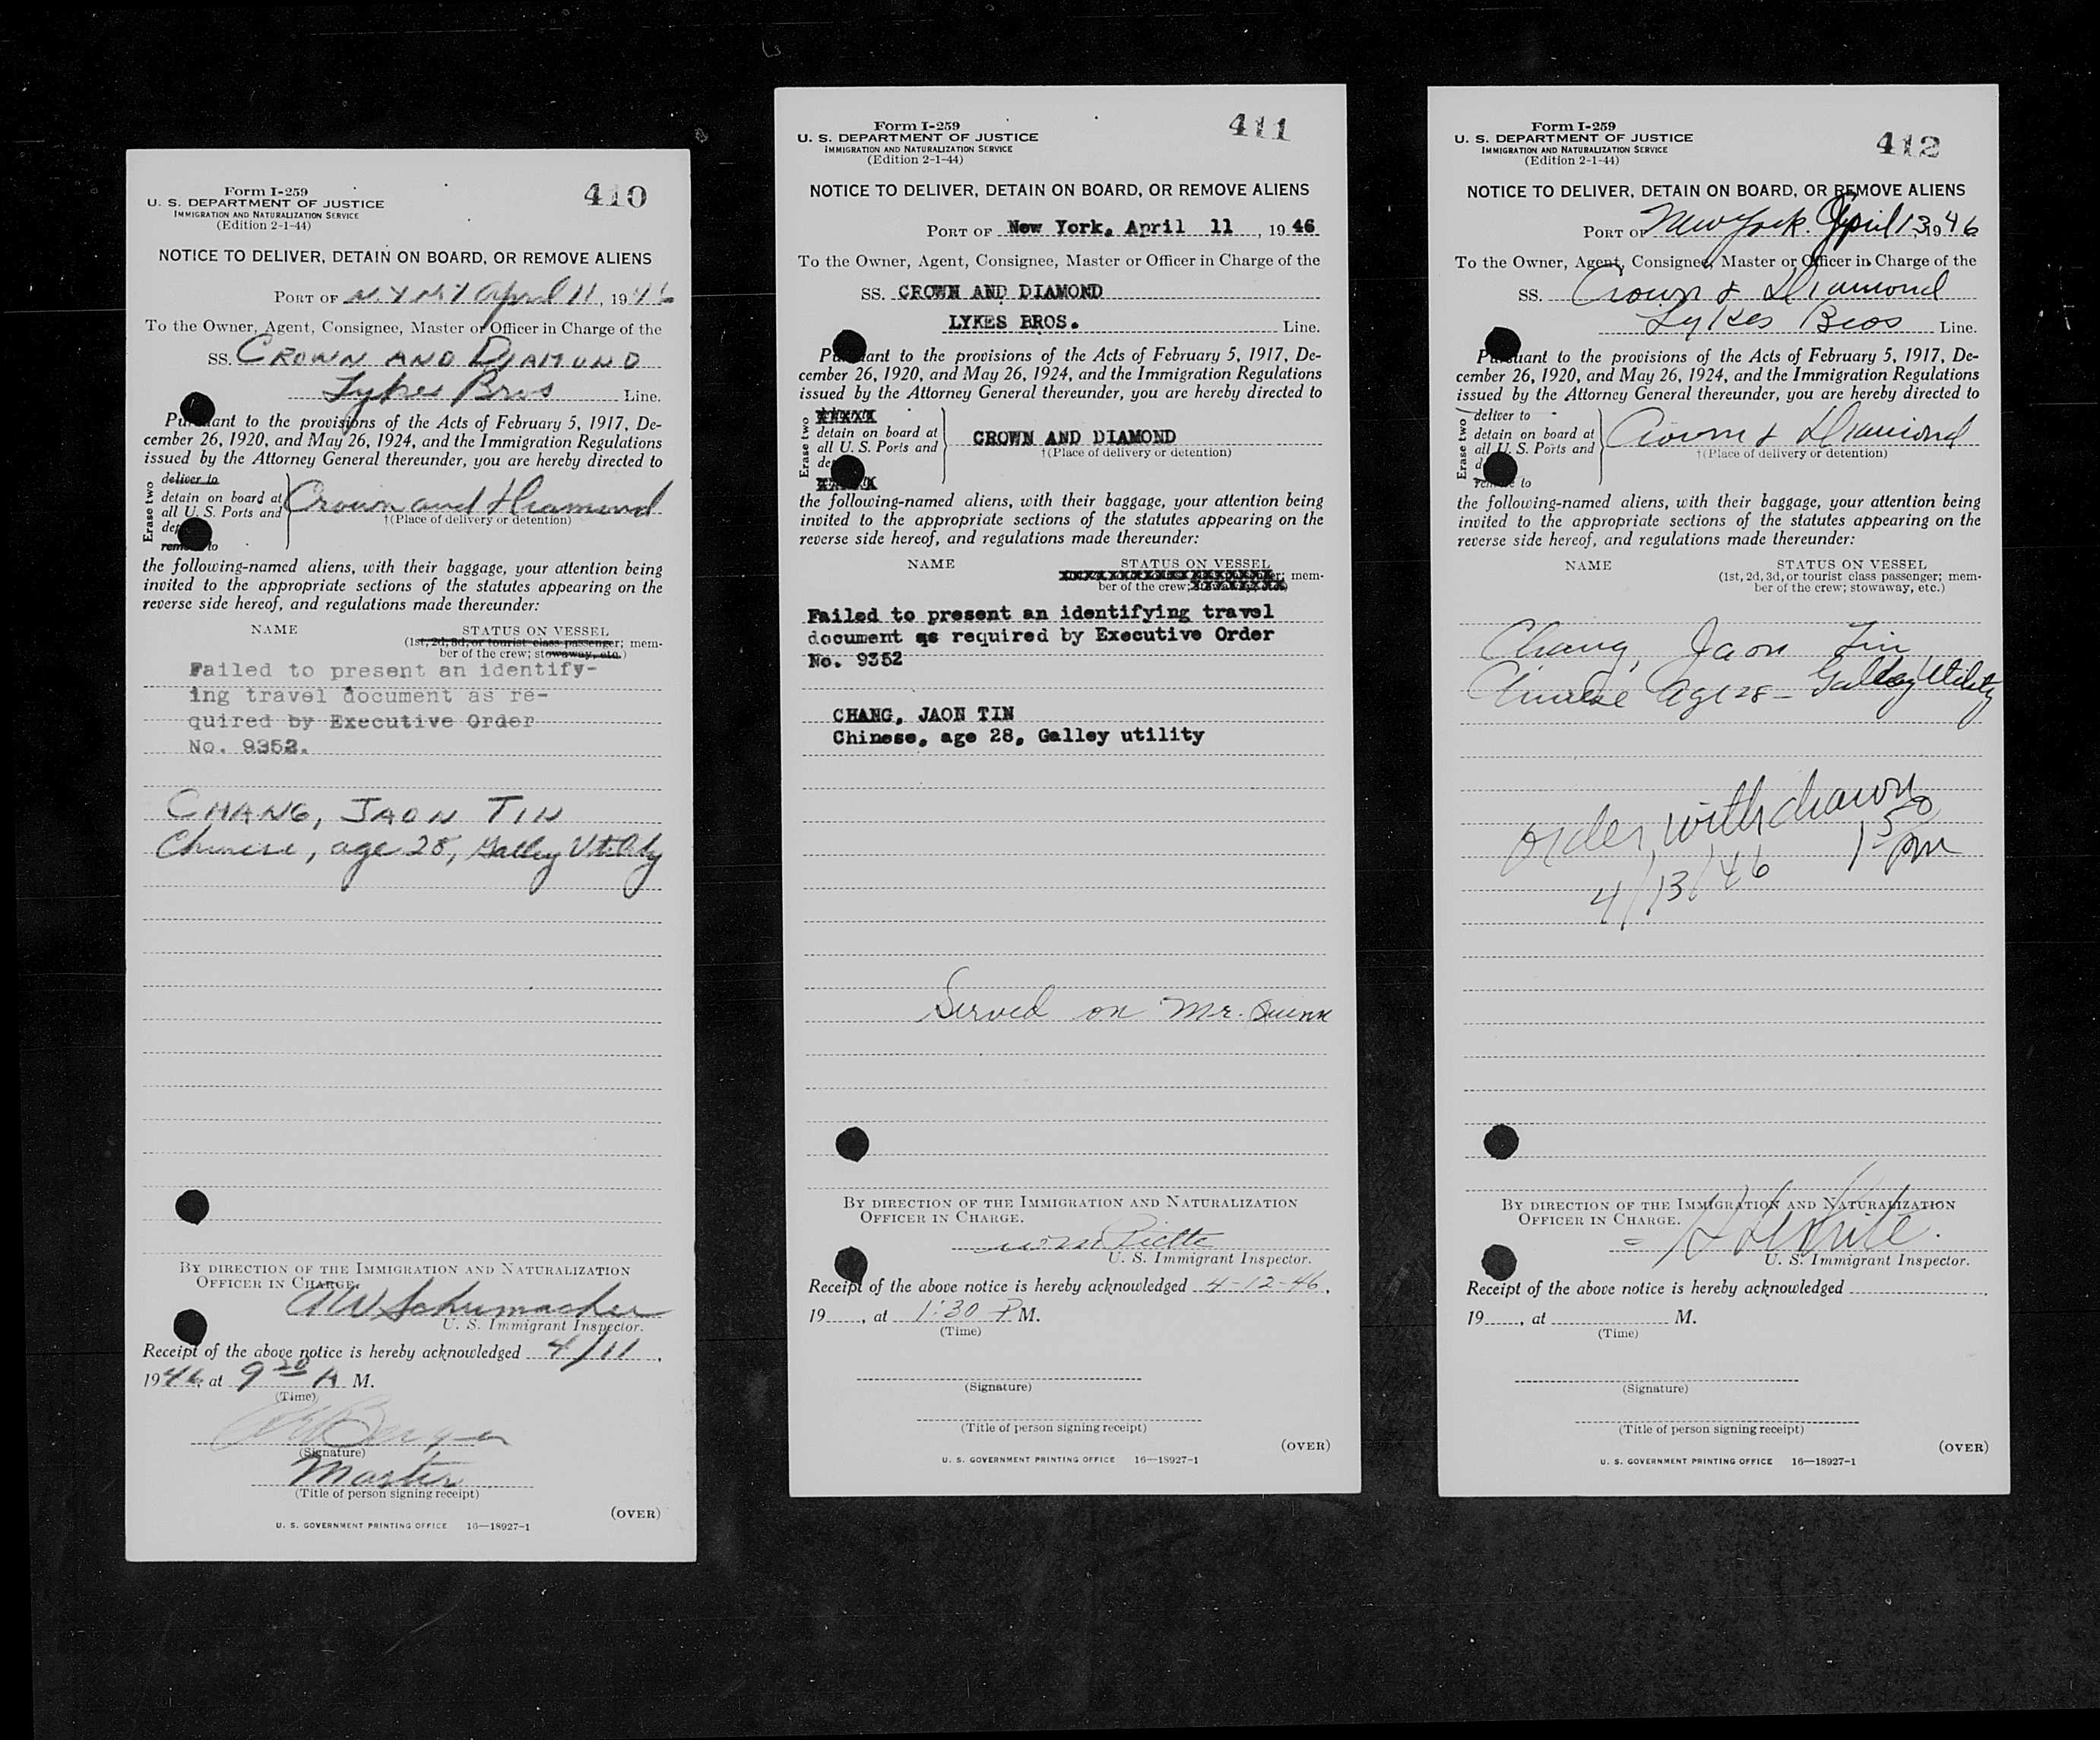 410
Form I-259
U. S. DEPARTMENT OF JUSTICE
IMMIGRATION AND NATURALIZATION SERVICE
(Edition 2-1-44)
NOTICE TO DELIVER, DETAIN ON BOARD, OR REMOVE ALIENS
PORT OF N.Y. N.Y April 11, 1946
To the Owner, Agent, Consignee, Master or Officer in Charge of the
SS. CROWN AND DIAMOND
Lykes Bros Line.
Pursuant to the provisions of the Acts of February 5, 1917, De-
cember 26, 1920, and May 26, 1924, and the Immigration Regulations
issued by the Attorney General thereunder, you are hereby directed to
Erase two
deliver to
detain on board at
all U. S. Ports and
de
remove to
Crown and Diamond
†(Place of delivery or detention)
the following-named aliens, with their baggage, your attention being
invited to the appropriate sections of the statutes appearing on the
reverse side hereof, and regulations made thereunder:
NAME STATUS ON VESSEL
(1st, 2d, 3d, or tourist class passenger; mem-
ber of the crew; stowaway, etc.)
Failed to present an identify-
ing travel document as re-
quired by Executive Order
No. 9352.
CHANG, JAON TIN
Chinese, age 28, Galley Utility
BY DIRECTION OF THE IMMIGRATION AND NATURALIZATION
OFFICER IN CHARGE.
Schumacher
U. S. Immigrant Inspector.
Receipt of the above notice is hereby acknowledged 4/11,
1946, at 9 20 A M.
(Time)
(Signature)
Master
(Title of person signing receipt)
(OVER)
U. S. GOVERNMENT PRINTING OFFICE 16—18927-1
411
Form I-259
U. S. DEPARTMENT OF JUSTICE
IMMIGRATION AND NATURALIZATION SERVICE
(Edition 2-1-44)
NOTICE TO DELIVER, DETAIN ON BOARD, OR REMOVE ALIENS
PORT OF New York, April 11, 1946
To the Owner, Agent, Consignee, Master or Officer in Charge of the
SS. CROWN AND DIAMOND
LYKES BROS. Line.
Pursuant to the provisions of the Acts of February 5, 1917, De-
cember 26, 1920, and May 26, 1924, and the Immigration Regulations
issued by the Attorney General thereunder, you are hereby directed to
Erase two
detain on board at
all U. S. Ports and
de
CROWN AND DIAMOND
†(Place of delivery or detention)
the following-named aliens, with their baggage, your attention being
invited to the appropriate sections of the statutes appearing on the
reverse side hereof, and regulations made thereunder:
NAME STATUS ON VESSEL
mem-
ber of the crew;
Failed to present an identifying travel
document as required by Executive Order
No. 9352
CHANG, JAON TIN
Chinese, age 28, Galley utility
Served on Mr. Quinn
BY DIRECTION OF THE IMMIGRATION AND NATURALIZATION
OFFICER IN CHARGE.
U. S. Immigrant Inspector.
Receipt of the above notice is hereby acknowledged 4-12-46,
19, at 1:30 P M.
(Time)
(Signature)
(Title of person signing receipt)
(OVER)
U. S. GOVERNMENT PRINTING OFFICE 16—18927-1
412
Form I-259
U. S. DEPARTMENT OF JUSTICE
IMMIGRATION AND NATURALIZATION SERVICE
(Edition 2-1-44)
NOTICE TO DELIVER, DETAIN ON BOARD, OR REMOVE ALIENS
PORT OF New York. April 13, 1946
To the Owner, Agent, Consignee, Master or Officer in Charge of the
SS. Crown & Diamond
Lykes Bros Line.
Pursuant to the provisions of the Acts of February 5, 1917, De-
cember 26, 1920, and May 26, 1924, and the Immigration Regulations
issued by the Attorney General thereunder, you are hereby directed to
Erase two
deliver to
detain on board at
all U. S. Ports and
d
remove to
Crown & Diamond
†(Place of delivery or detention)
the following-named aliens, with their baggage, your attention being
invited to the appropriate sections of the statutes appearing on the
reverse side hereof, and regulations made thereunder:
NAME STATUS ON VESSEL
(1st, 2d, 3d, or tourist class passenger; mem-
ber of the crew; stowaway, etc.)
Chang, Jaon Tin
Chinese Age 28 – Galley Utility
order withdrawn
4/13/46 1 50 pm
BY DIRECTION OF THE IMMIGRATION AND NATURALIZATION
OFFICER IN CHARGE.
White.
U. S. Immigrant Inspector.
Receipt of the above notice is hereby acknowledged
19, at M.
(Time)
(Signature)
(Title of person signing receipt)
(OVER)
U. S. GOVERNMENT PRINTING OFFICE 16—18927-1